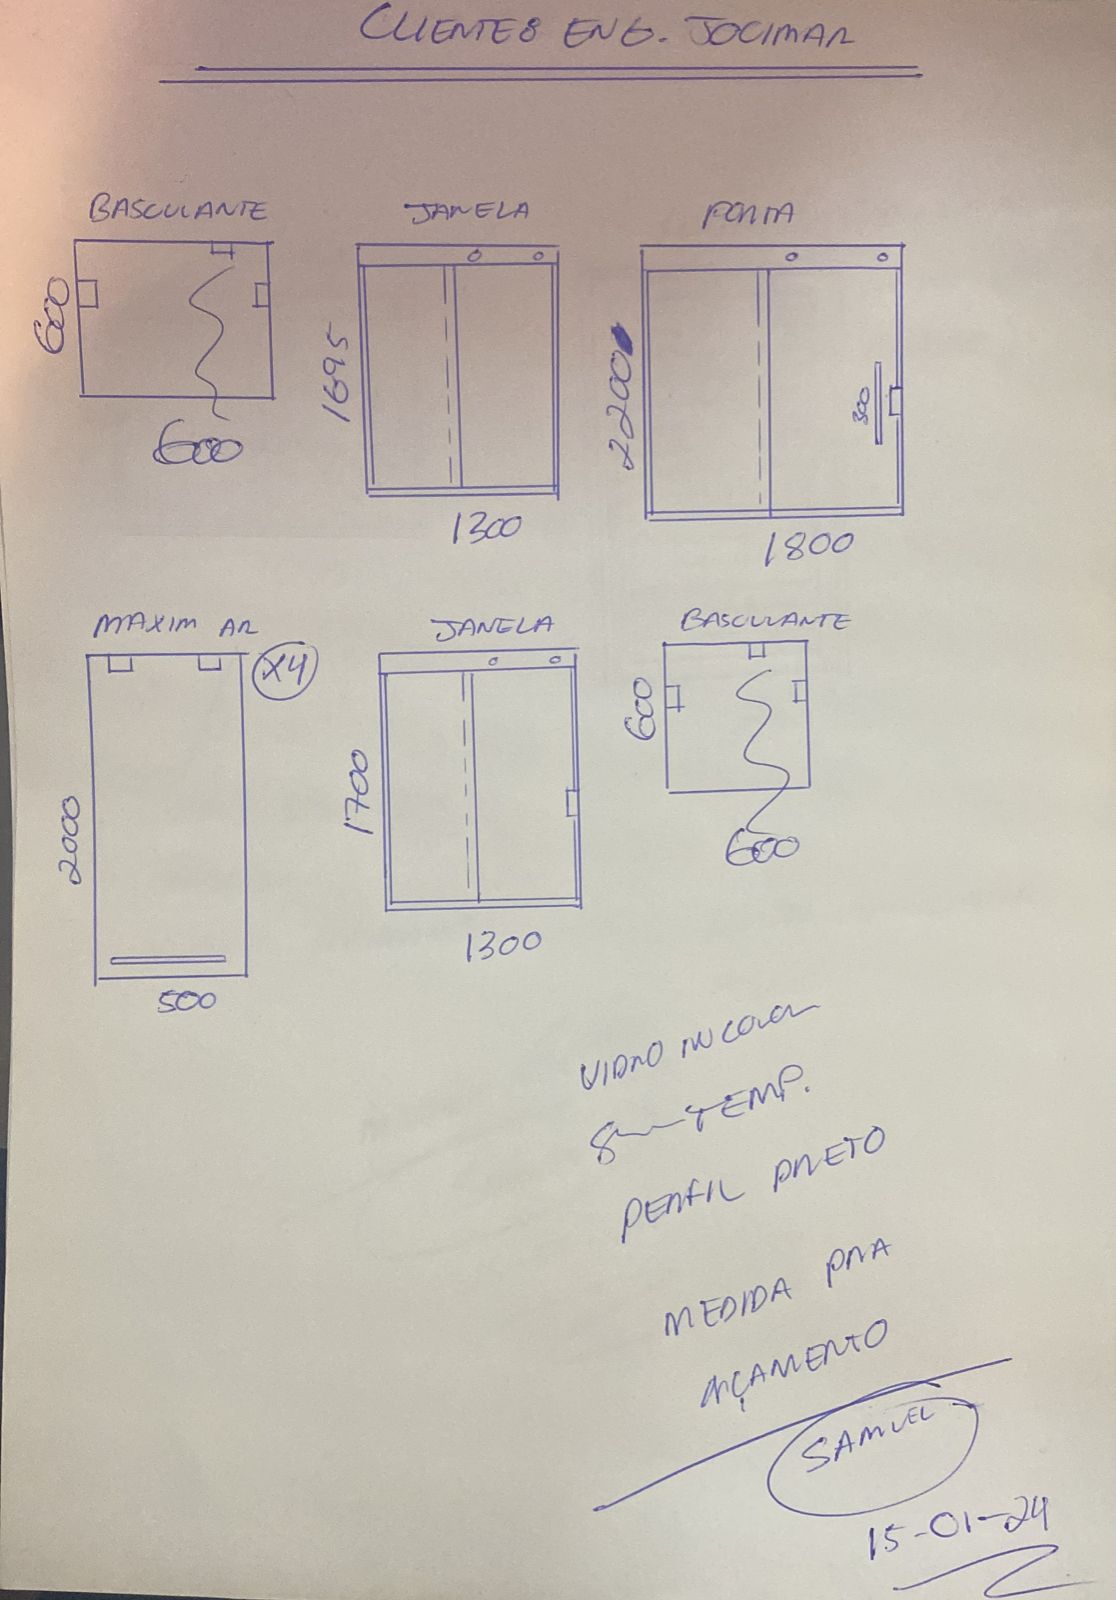 CLIENTES ENG. JOCIMAR
BASCULANTE
JANELA
PORTA
600
600
1695
1300
2200
300
1800
MAXIM AR
X4
JANELA
BASCULANTE
2000
500
1700
1300
600
600
VIDRO INCOLOR
8mm TEMP.
PERFIL PRETO
MEDIDA PRA
ORÇAMENTO
SAMUEL
15-01-24